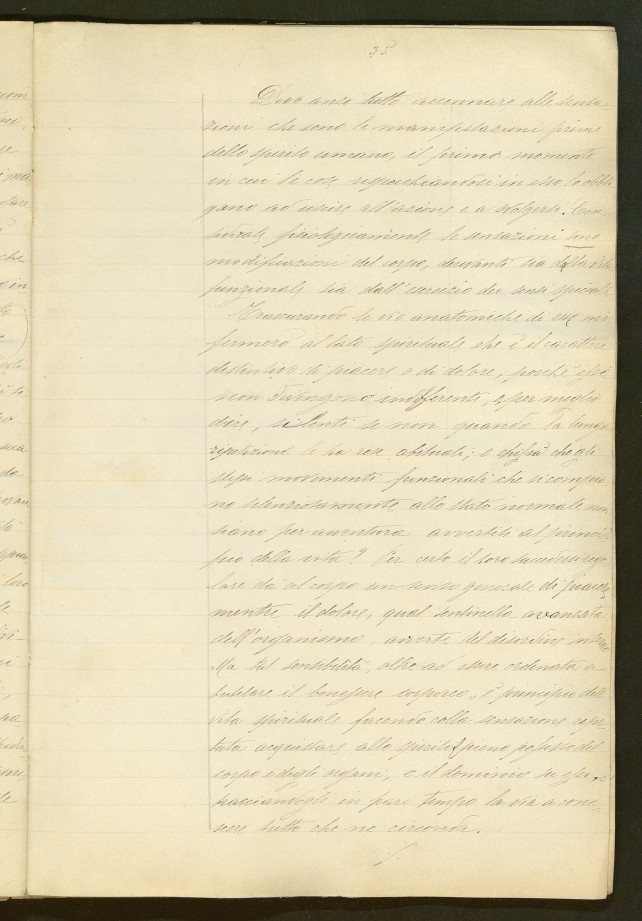 35
Devo anzi tutto accennare alle sensa
zioni che sono le manifestazioni prime
dello spirito umano, il primo momento
in cui le cose rispecchiandosi in esso lo obbli
gano ad uscire all'azione e a svolgersi. Con
siderate fisiologicamente le sensazioni sono
modificazioni del corpo, derivanti sia dalla vita
funzionale sia dall'esercizio dei sensi speciali
Trascurando le vie anatomiche di esse mi
fermerò al lato spirituale che è il carattere
distintivo di piacere e di dolore, poichè esse
non divengono indifferenti, o per meglio
dire, silenti se non quando la lunga
ripetizione le ha rese abituali; e chi sa che gli
stessi movimenti funzionali che si compio
no silenziosamente allo stato normale non
siano per avventura avvertiti al princi
pio della vita? Per certo il loro succedersi rego
lare dà al corpo un senso generale di piacere,
mentre il dolore, qual sentinella avanzata
dell'organismo, avverte del disordine interno
Ma tal sensibilità, oltre ad essere ordinata a
tutelare il benessere corporeo, è principio della
vita spirituale facendo colla sensazione ripe
tuta acquistare allo spirito pieno possesso del
corpo e degli organi, e il dominio su essi, e
tracciandogli in pari tempo la via a cono-
scere tutto che ne circonda.